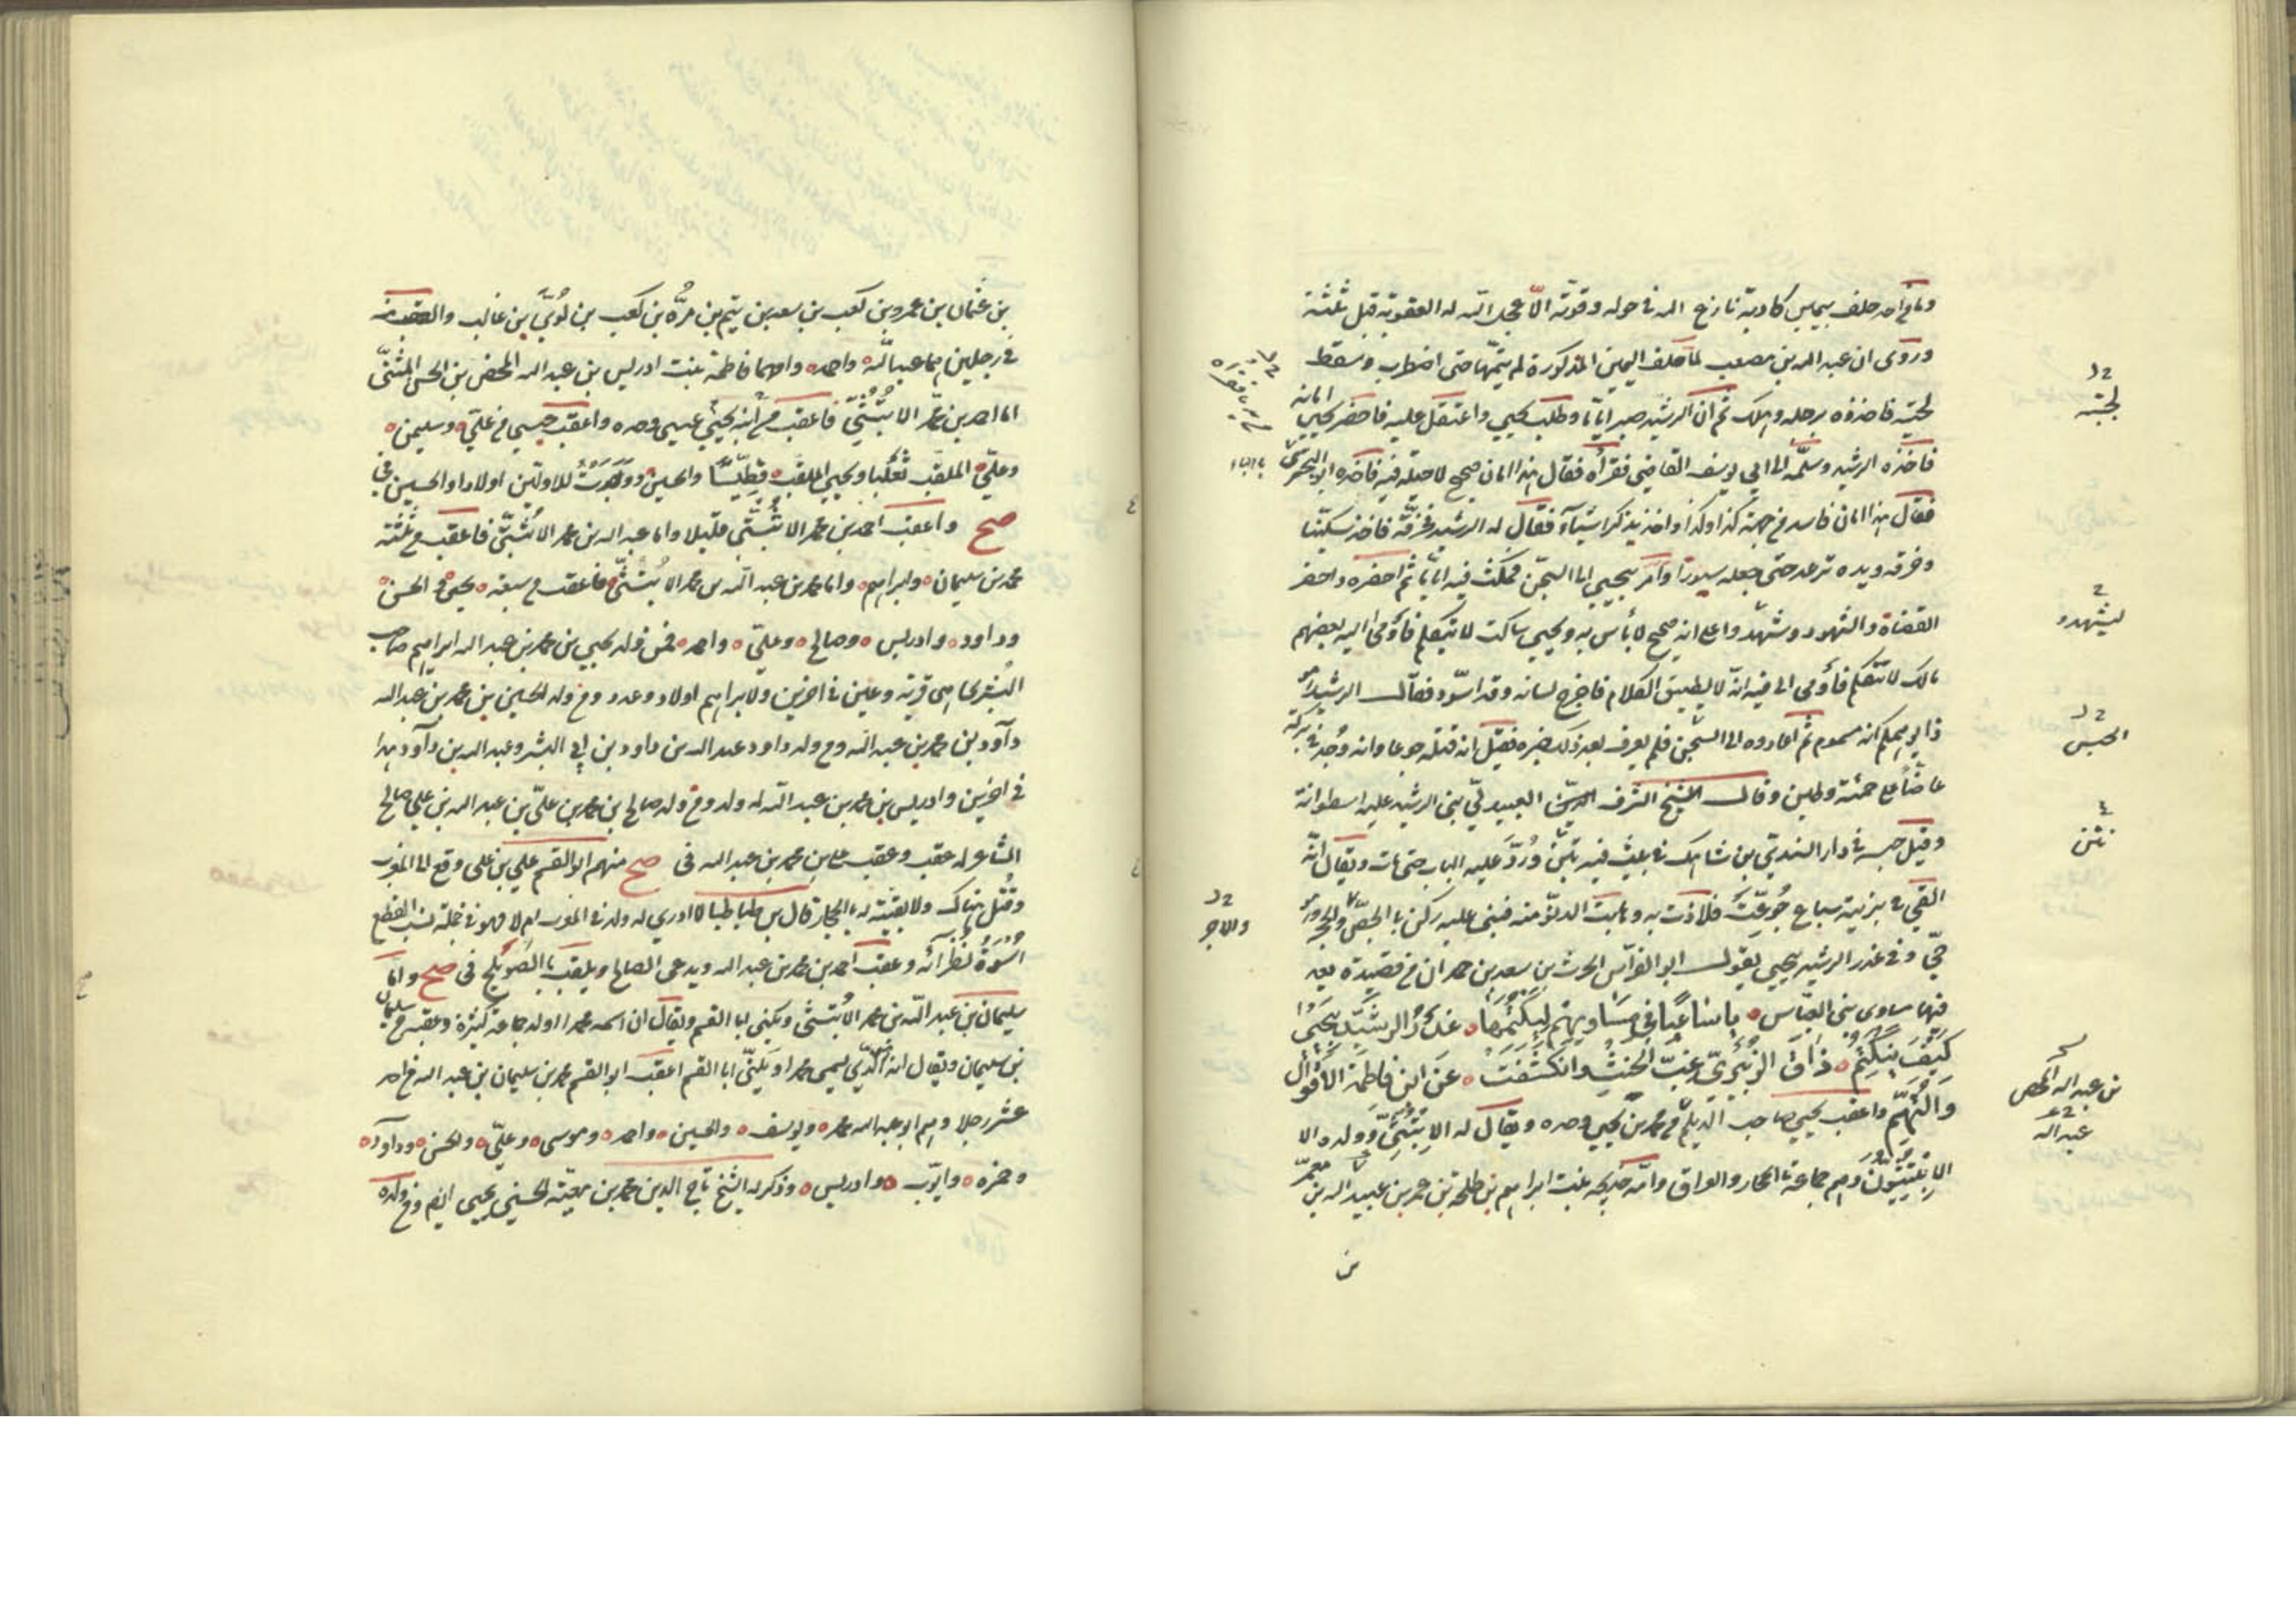 وما من احد حلف بيمين كاذبة نازع الله في حوله وقوته الا عجل الله له العقوبة قبل ثلثة
وروى ان عبد الله بن مصعب لما حلف اليمين المذكورة لم يتمها حتى اضطرب وسقط
لجنبه فاخذوه برجله وهلك ثم ان الرشيد صبر اياما وطلب يحيى واعتقل عليه فاحضر يحيى امانه
فاخذه الرشيد وسلمه الى ابي يوسف القاضي فقرأه فقال هذا الامان صحيح لا حيلة فيه فاخذه ابو البحتري
فقال هذا امان فاسد من جهة كذا وكذا واخذ يذكر اشياء فقال له الرشيد فخرقه فاخذ سكينا
وخرقه ويده ترعد حتى جعله سيورا وامر بيحيى الى السجن فمكث فيه اياما ثم احضره واحضر
القضاة والشهود وشهدوا على انه صحيح لا بأس به ويحيى ساكت لا يتكلم فأومى اليه بعضهم
مالك لا تتكلم فأومى الى فيه انه لا يطيق الكلام فاخرج لسانه وقد اسود فقال الرشيد هو
ذا يوهمكم انه مسموم ثم اعادوه الى السجن فلم يعرف بعد ذلك خبره فقيل انه قتله جوعا وانه وجد في بركة
عاضا على حمئة وطين وقال الشيخ الشرف العبيدلي بنى الرشيد عليه اسطوانة
وقيل حبسه في دار السندي بن شاهك في بيت فيه نتن ورد عليه الباب حتى مات ويقال انه
القي في بزبية سباع جوعت فلاذت به وهابت الدنو منه فبنى عليه ركن بالجص والحجر وهو
حي وفي غدر الرشيد بيحيى يقول ابو الفراس الحرث بن سعيد بن حمدان من قصيدة يعد
فيها مساوى بني العباس يا ساعيا في مساويهم ليكتمها غدر الرشيد بيحيى
كيف ينكتم ذاق الزبيري غب الحنث وانكشفت عن ابن فاطمة الاقوال
والتهم واعقب يحيى صاحب الديلم من محمد بن يحيى وحده ويقال له الابتثي وولده الا
الابتثيون وهم جماعة بالحجاز والعراق وامه خديجة بنت ابراهيم بن طلحة بن عمر بن عبيد الله بن معمر
بن
لجنبه
ليشهدو
الحبس
نتن
والاجر
بن عبد الله المحض
عبد الله
بن عثمان بن عمرو بن كعب بن سعد بن تيم بن مرة بن كعب بن لوي بن غالب والعقب منه
في رجلين هما عبد الله واحمد وامهما فاطمة بنت ادريس بن عبد الله المحض بن الحسن المثنى
اما احمد بن محمد الابتثي فاعقب من ابنه يحيى عيسى وحده واعقب عيسى من علي وسليمن
وعلي الملقب ثعلبا ويحيى الملقب قطيسا والحسين للاولين اولادا والحسين في
صح واعقب احمد بن محمد الابتثي قليلا واما عبد الله بن محمد الابتثي فاعقب من ثلثة
محمد بن سليمان وابراهيم واما محمد بن عبد الله بن محمد الابتثي فاعقب من سبعة يحيى والحسن
وداود وادريس وصالح وعلي واحمد فمن ولد يحيى بن محمد بن عبد الله ابراهيم صاحب
البثري هى قرية وعين في اخرين ولابراهيم اولاد وعدد ومن ولد الحسين بن محمد بن عبد الله
داود بن محمد بن عبد الله ومن ولد داود عبد الله بن داود بن ابي البشر وعبد الله بن داود هذا
في اخرين وادريس بن محمد بن عبد الله له ولد ومن ولد صالح بن محمد بن علي بن عبد الله بن علي صالح
الشاعر له عقب وعقب علي بن محمد بن عبد الله في صح منهم ابو القسم علي بن علي وقع الى المغرب
وقتل هناك ولا بقية له بالحجاز قال بن طباطبا لا ادري له ولد في المغرب ام لا فهو في جملة نسب القطع
اسوة نظرائه وعقب احمد بن محمد بن عبد الله ويدعى الصالح ويلقب بالصويلح في صح واما
سليمان بن عبد الله بن محمد الابتثي ويكنى ابا القسم ويقال ان اسمه محمد اولد جماعة كثيرة وعقبه من سليمان
بن سليمان ويقال انه الذي يسمى محمدا ويكنى ابا القسم اعقب ابو القسم محمد بن سليمان بن عبد الله من احد
عشر رجلا وهم ابو عبد الله محمد ويوسف والحسين واحمد وموسى وعلي والحسن وداود
وحمزه وايوب وادريس وذكر له الشيخ تاج الدين محمد بن معية الحسني يحيى ايضا ومن ولده